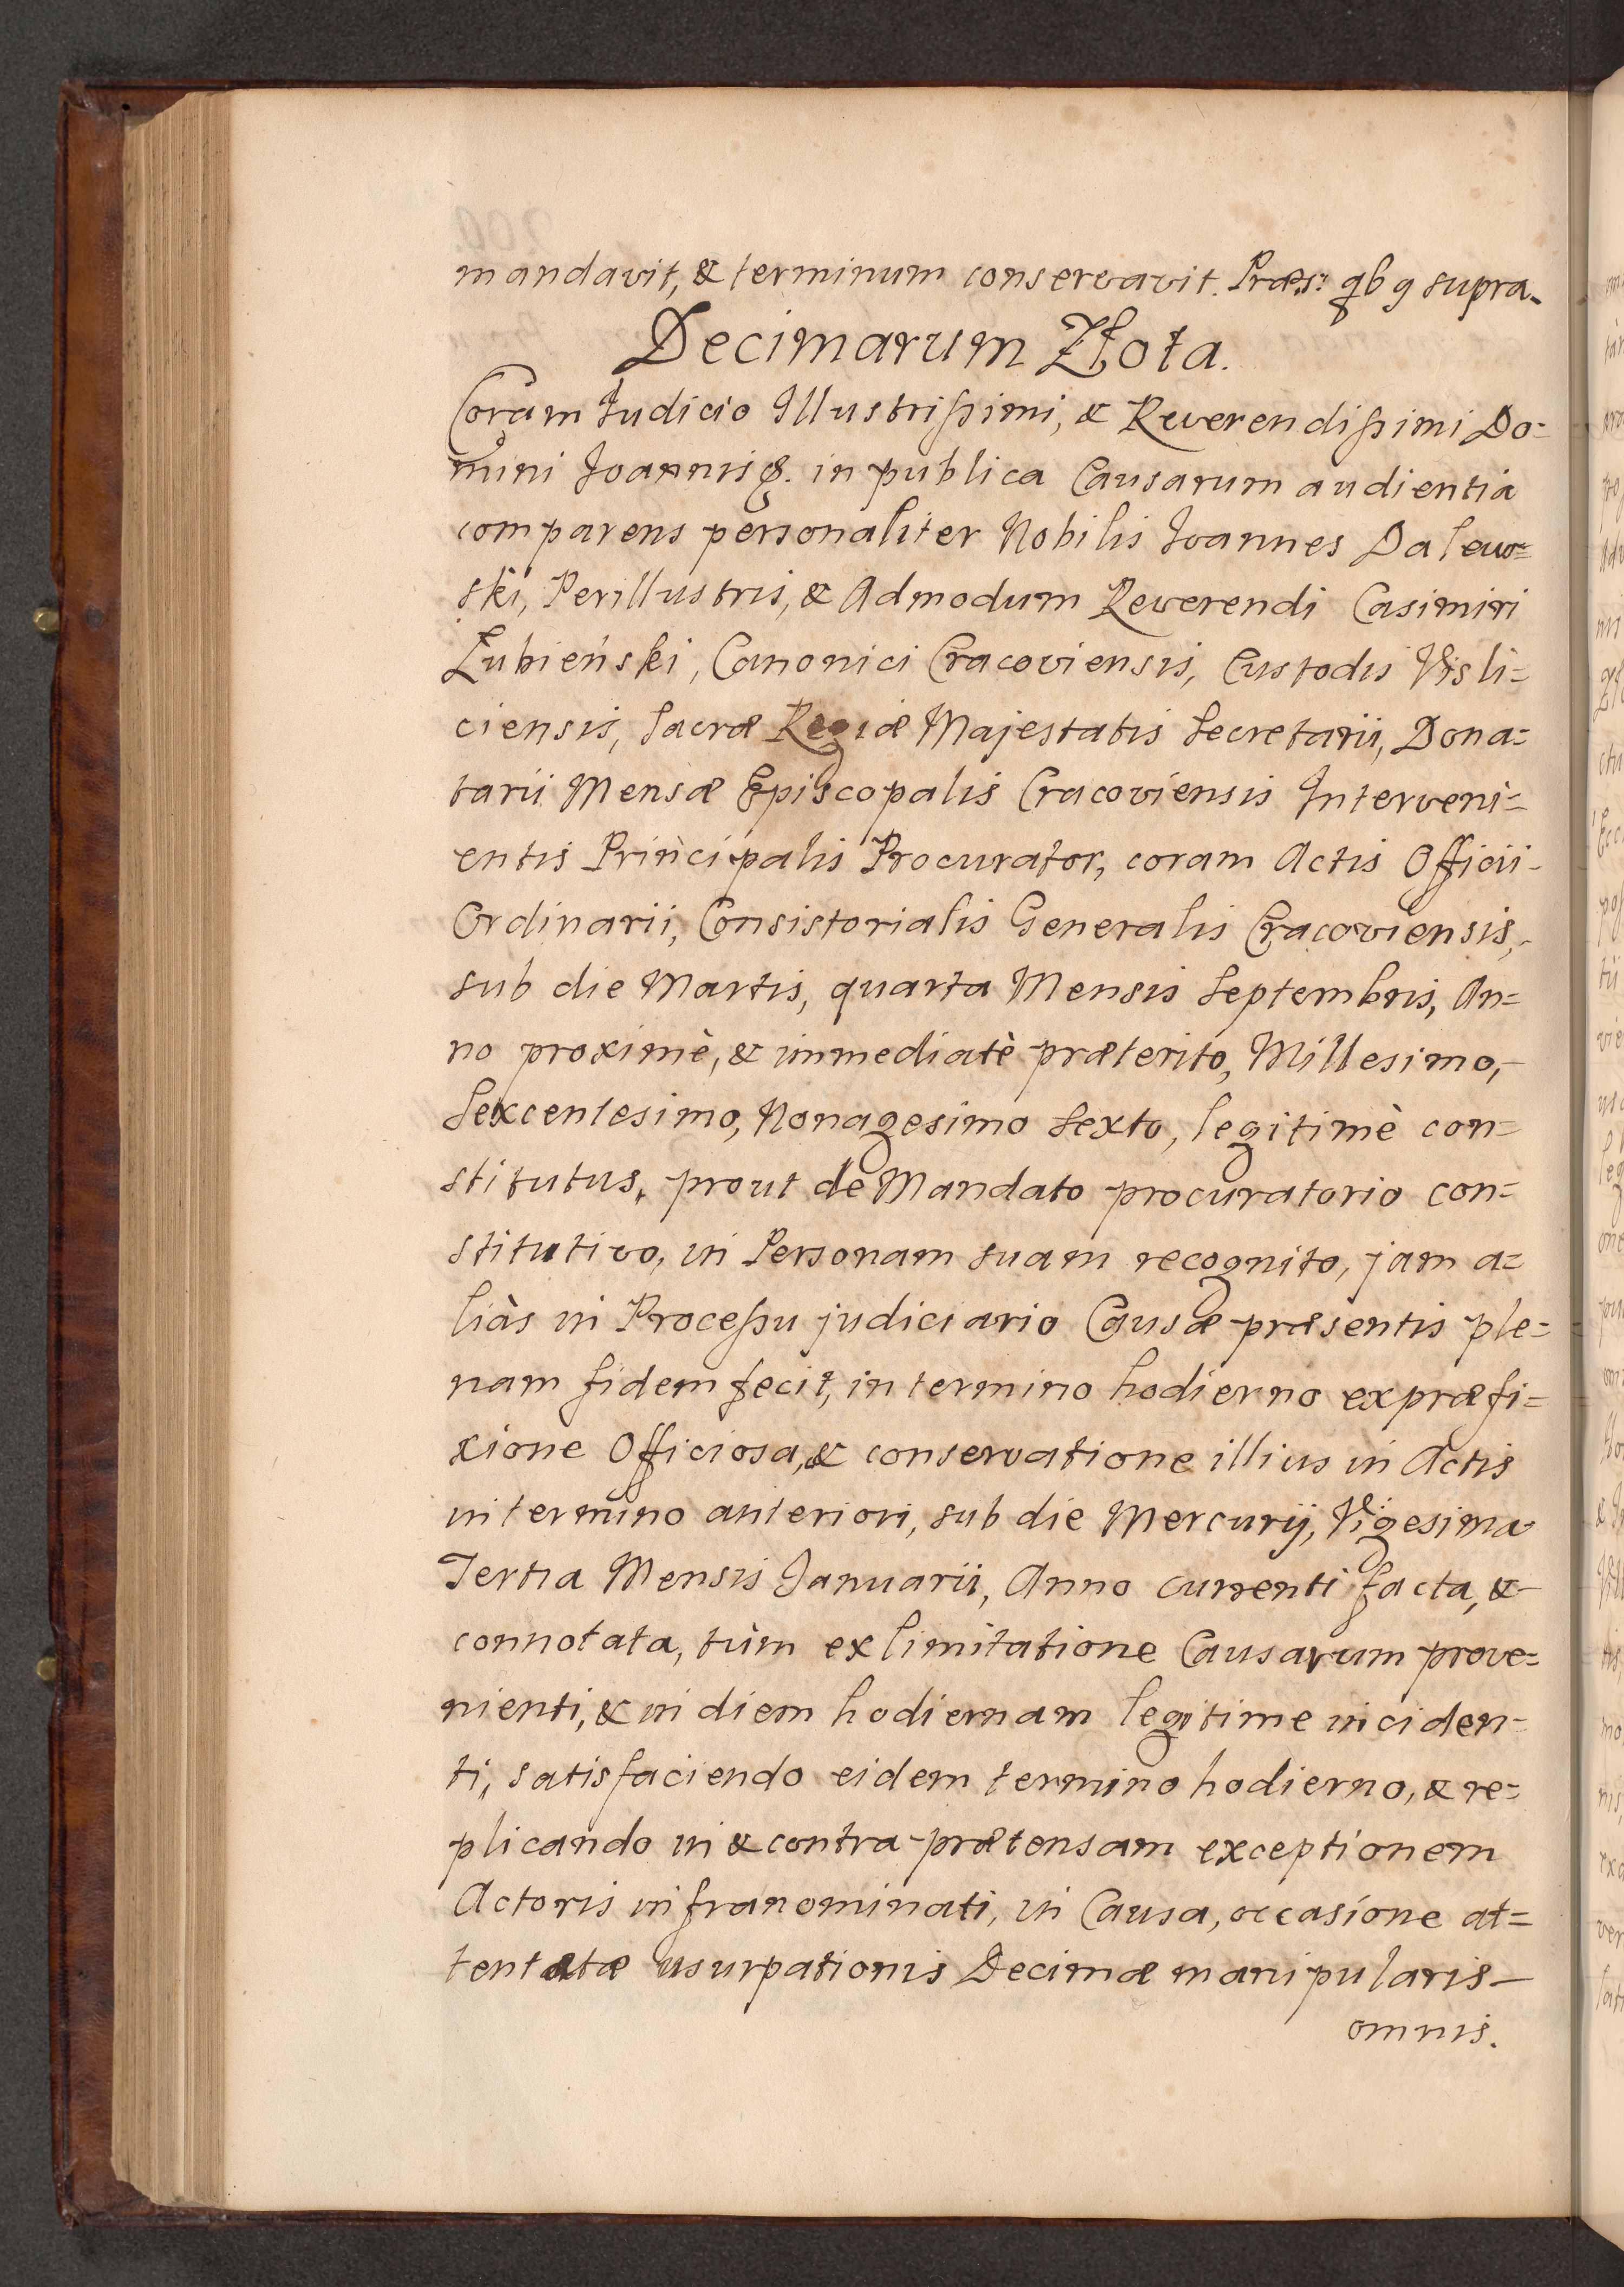 mandavit, & terminum conservavit. Præs: qb9 supra.
Decimarum Złota.
Coram Judicio Illustrißimi, & Reverendißimi Do=
mini Joannis &. in publica Causarum audientia
comparens personaliter Nobilis Joannes Dalew=
ski, Perillustris, & Admodum Reverendi Casimiri
Łubieński, Canonici Cracoviensis, Custodis Visli=
ciensis, Sacræ Regiæ Majestatis Secretarii, Dona=
tarii Mensæ Episcopalis Cracoviensis Interveni=
entis Principalis Procurator, coram Actis Officii-
Ordinarii, Consistorialis Generalis Cracoviensis,
sub die Martis, quarta Mensis Septembris, An=
no proximè, & immediatè præterito, Millesimo,
Sexcentesimo, Nonagesimo Sexto, legitimè con=
stitutus, prout de Mandato procuratorio con=
stitutivo, in Personam suam recognito, jam a=
liàs in Proceßu judiciario Causæ præsentis ple=
nam fidem fecit, in termino hodierno ex præfi=
xione Officiosa, & conservatione illius in Actis
in termino anteriori, sub die Mercurij, Vigesima
Tertia Mensis Januarii, Anno currenti facta, &
connotata, tùm ex limitatione Causarum prove=
nienti, & in diem hodiernam legitime inciden=
ti, satisfaciendo eidem termino hodierno, & re=
plicando in & contra prætensam exceptionem
Actoris infranominati, in Causa, occasione at=
tentatæ usurpationis Decimæ manipularis
omnis.